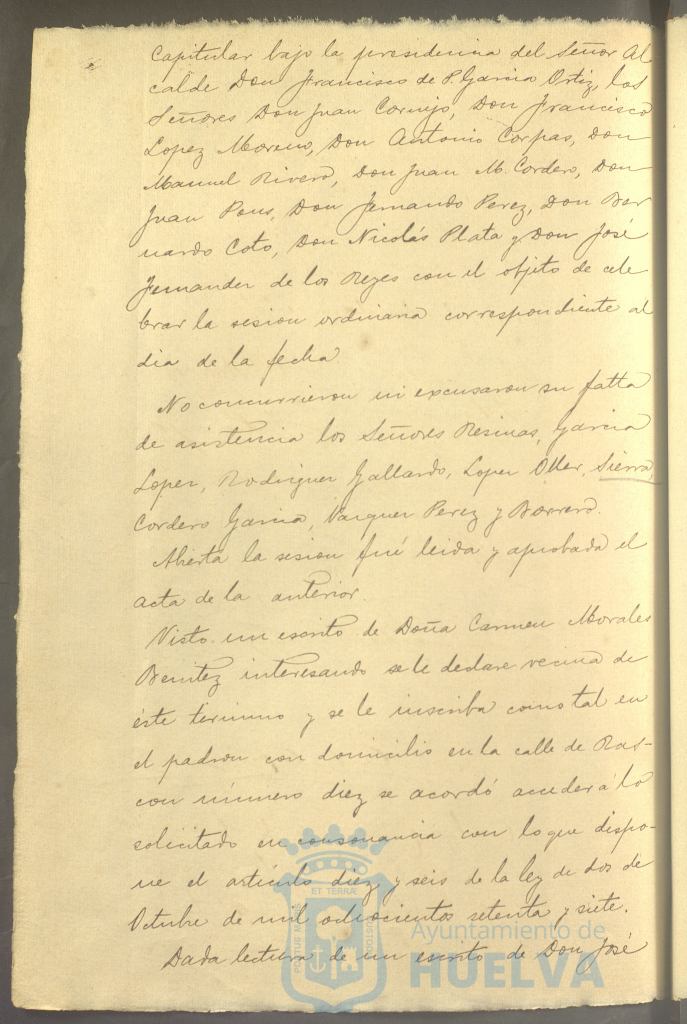 Capitular bajo la presidencia del Señor Al
calde Don Francisco de P. Garcia Ortiz, los
Señores Don Juan Cornejo, Don Francisco
Lopez Moreno, Don Antonio Corpas, Don
Manuel Rivero, Don Juan M. Cordero, Don
Juan Pons, Don Fernando Perez, Don Ber
nardo Coto, Don Nicolás Plata y Don José
Fernandez de los Reyes con el objeto de cele
brar la sesion ordinaria correspondiente al
dia de la fecha.
No concurrieron ni excusaron su falta
de asistencia los Señores Resinas, Garcia
Lopez, Rodriguez Gallardo, Lopez Oller, Sierra,
Cordero Garcia, Vazquez Perez y Borrero.
Abierta la sesion fué leida y aprobada el
acta de la anterior.
Visto un escrito de Doña Carmen Morales
Benitez interesando se le declare vecina de
éste termino y se le inscriba como tal en
el padron con domicilio en la calle de Ras-
con número diez se acordó acceder á lo
solicitado en consonancia con lo que dispo-
ne el artículo diez y seis de la ley de dos de
Octubre de mil ochocientos setenta y siete.
Dada lectura de un escrito de Don José
PORTUS MARIS ET TERRÆ CUSTODIA
Ayuntamiento de
HUELVA